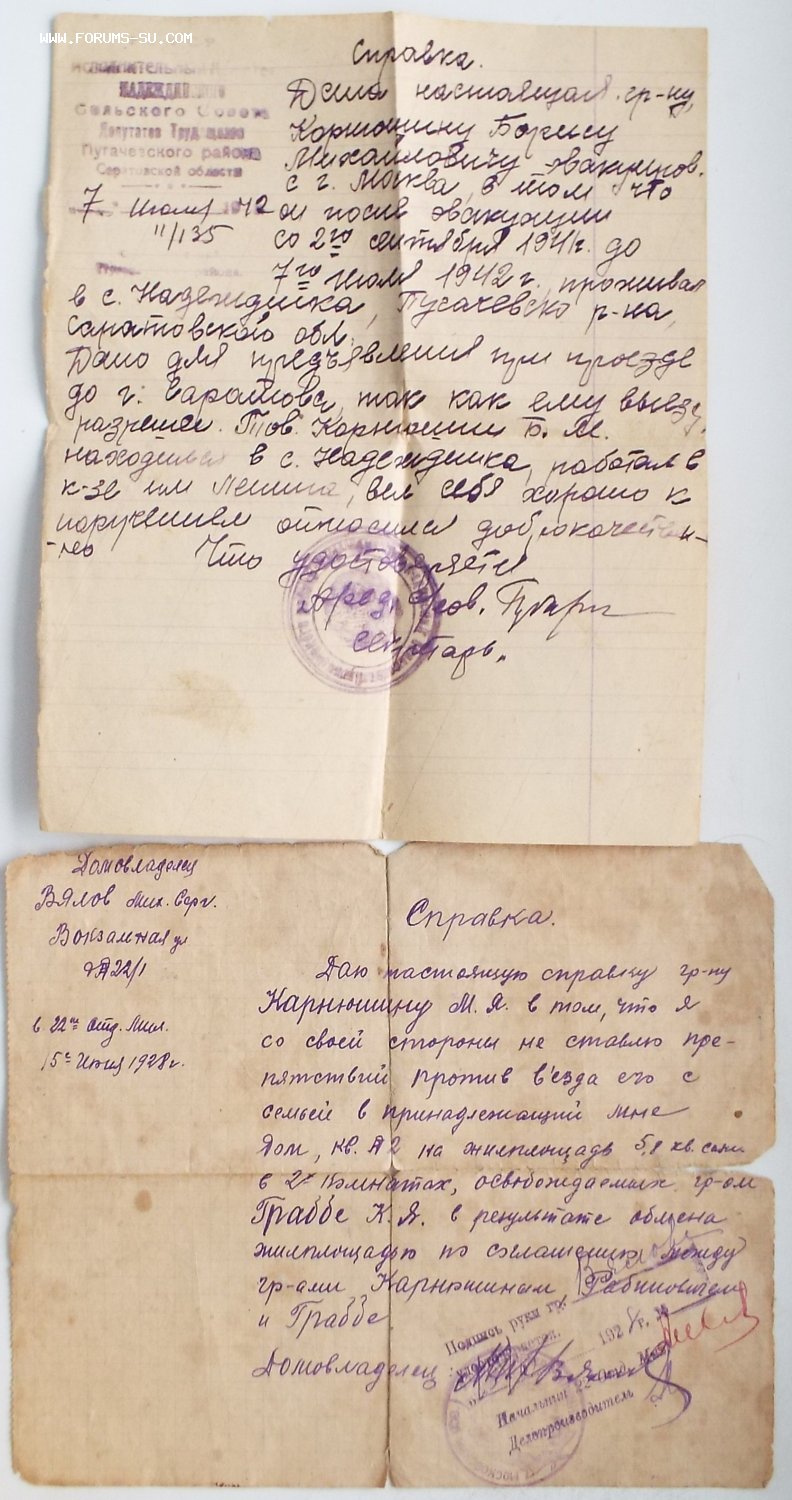 WWW.FORUMS-SU.COM
Справка.
НАДЕЖДИНСКОГО
Сельского Совета
Депутатов Трудящихся
Пугачевского района
Саратовской области
7 июля 1942
11/135
Дана настоящая гр-ну,
Корнюшину Борису
Михайловичу эвакуиров.
с г. Москва, в том что
он после эвакуации
со 2го сентября 1941г. до
7го июля 1942 г. проживал
в с. Надеждинка, Пугачевско р-на,
Саратовской обл.
Дано для предъявления при проезде
до г. Саратова, так как ему выезд
разрешен. Тов. Корнюшин Б. М.
находился в с. Надеждинка, работал в
к-зе им Ленина, вел себя хорошо к
поручениям относился доброкачествен-
-но Что удостоверяется
Пред. Сов.
Секретарь.
Домовладелец
Вялов Мих. Серг.
Вокзальная ул
д№22/1
в 22ое Отд. Мил.
15го Июня 1928г.
Справка.
Даю настоящую справку гр-ну
Карнюшину М. Я. в том, что я
со своей стороны не ставлю пре-
пятствий против в'езда его с
семьей в принадлежащий мне
дом, кв. №2 на жилплощадь 5,8 кв. саж
в 2х комнатах, освобождаемых гр-ом
Граббе К. Я. в результате обмена
жилплощадью по соглашению между
гр-ами Карнюшиным Рабиновичем
и Граббе.
Домовладелец
Подпись руки гр.
удостоверяется.
192 8 г.
Начальник 22 Отд. Мил.
Делопроизводитель